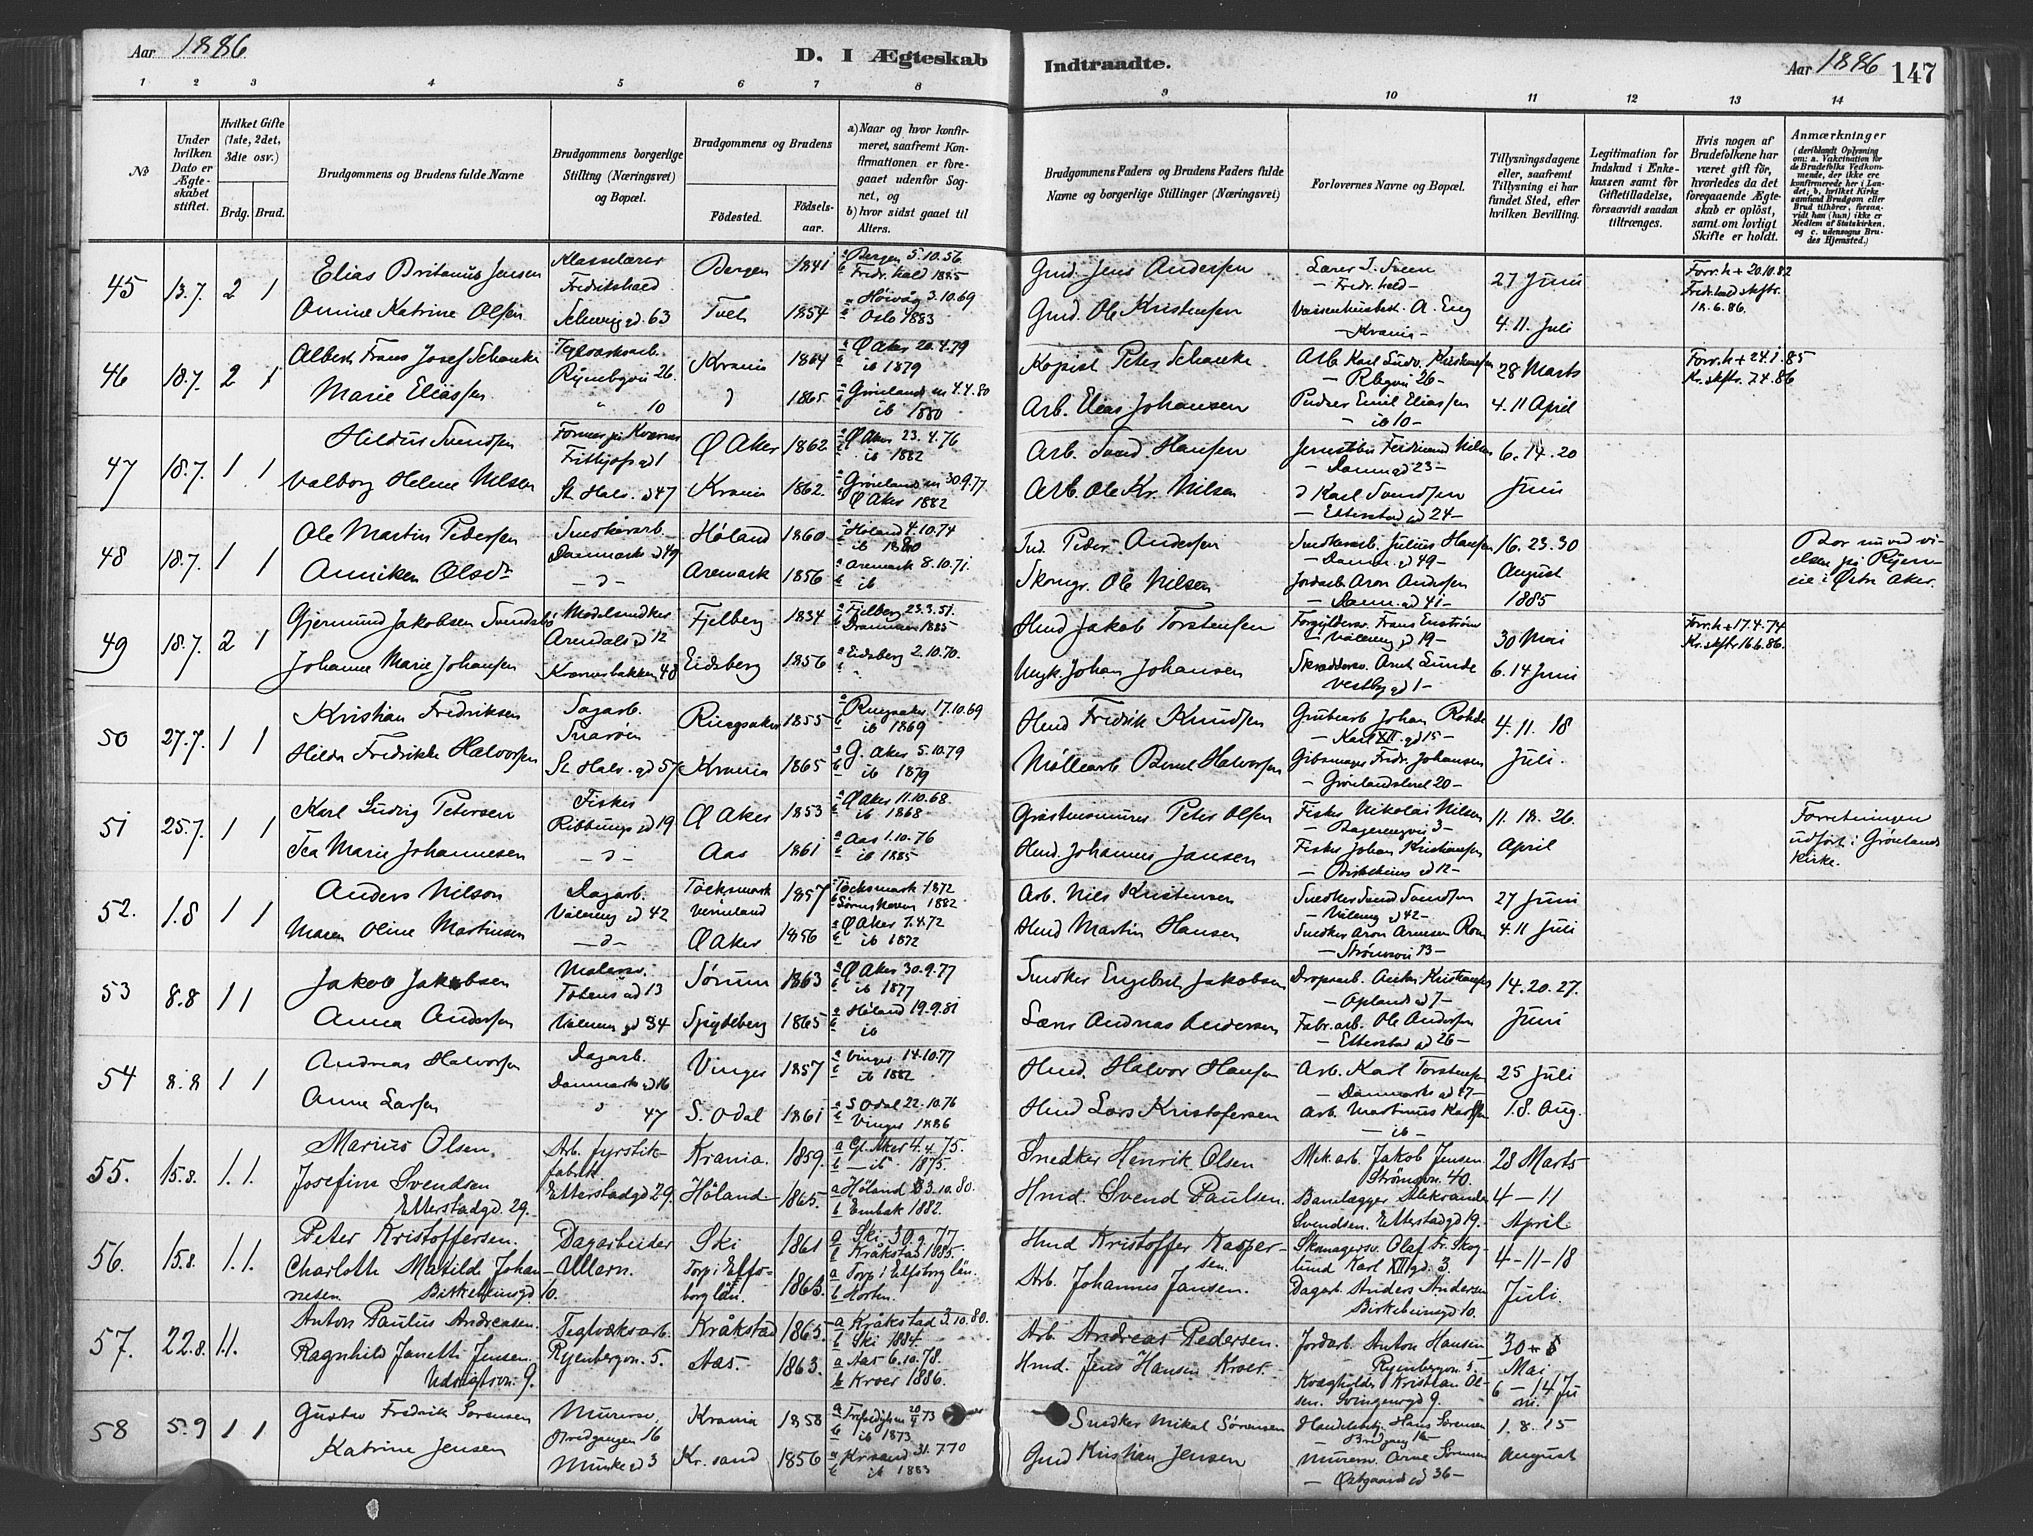 Aar 1886
D. I Ægteskab Indtraadte.
Aar 1886 147
1 2 3 4 5 6 7 8 9 10 11 12 13 14
No
Under hvilken Dato er Ægteskabet stiftet.
Hvilket Gifte (1ste, 2det, 3die osv.)
Brdg. Brud.
Brudgommens og Brudens fulde Navne
Brudgommens borgerlige Stilling (Næringsvei) og Bopæl.
Brudgommens og Brudens
Fødested. Fødselsaar.
a) Naar og hvor konfirmeret, saafremt Konfirmationen er foregaaet udenfor Sognet, og
b) hvor sidst gaaet til Alters.
Brudgommens Faders og Brudens Faders fulde Navne og borgerlige Stillinger (Næringsvei)
Forlovernes Navne og Bopæl.
Tillysningsdagene eller, saafremt Tillysning ei har fundet Sted, efter hvilken Bevilling.
Legitimation for Indskud i Enkekassen samt for Giftetilladelse, forsaavidt saadan tiltrænges.
Hvis nogen af Brudefolkene har været gift før, hvorledes da det foregaaende Ægteskab er opløst, samt om lovligt Skifte er holdt.
Anmærkninger
(deriblandt Oplysning om: a. Vakcination for de Brudefolks Vedkommende, der ikke ere konfirmerede her i Landet; b. hvilket Kirkesamfund Brudgom eller Brud tilhører, forsaavidt han (hun) ikke er Medlem af Statskirken, og c. udensogns Brudes Hjemsted.)
45 13.7. 2 1 Elias Britanus Jensen Klasselærer Fredrikshald Bergen 1841 a Bergen 5.10.56 b Fredr.hald 1885 Gmd. Jens Andersen Lærer J. Sveen – Fredr.hald – 27 Juni Forr. h. + 20.10.82 Fredr.hald skftr. 18.6.86.
Amine Katrine Olsen 63 Tvet 1854 a Høivåg 3.10.69 b Oslo 1883 Gmd. Ole Kristensen A. Eng – Krania – 4.11 Juli
46 18.7. 2 1 Albert Frans Josef Schanke Teglværksarb. Ryenbgvn 26. Krania 1864 a Ø Aker 20.4.79 b ib 1879 Kopist Peter Schanke Arb. Karl Ludv. Kristiansen – Rbgvn 26 – 28 Marts Forr. h + 24.1.85 Kr. skftr. 7.4.86
Marie Eliassen " 10 " 1865 a Grønlands m 4.4.80 b ib 1880 Arb. Elias Johansen Pudser Emil Eliassen – ib 10 – 4.11 April
47 18.7. 1 1 Hildus Svendsen Former på Kværner Frithjofs gd 1 Ø Aker 1862 a Ø Aker 23.4.76 b ib 1882 Arb. Svend Hansen Jernstøber Ferdinand Nilsen – Danm. gd 23 – 6.14.20
Valborg Helene Nilsen St. Halv. gd 47 Krania 1862. a Grønland m 30.9.77 b Ø Aker 1882 Arb. Ole Kr. Nilsen d Karl Svendsen – Etterstad gd 24 – Juni
48 18.7. 1 1 Ole Martin Pedersen Snedkerarb. Danmarks gd 49 Høland 1860 a Høland 4.10.74 b ib 1880 Ind. Peder Andersen Snedkerarb. Julius Hansen – Danm. gd 49 – 16.23.30 Bor nu ved vielsen på Ryen eie i Østre Aker.
Anniken Olsdr – d – Aremark 1856 a Aremark 8.10.71. b ib Skomgr. Ole Nilsen Jordarb Aron Andersen – Danm. gd 41 – August 1885
49 18.7. 2 1 Gjermund Jakobsen Svendsbø Modelsnedker Arendals gd 12 Fjelberg 1834 a Fjelberg 23.3.51. b Drammen 1885 Hmd Jakob Torstensen Forgyldersv. Frans Enstrøm – Vålereng gd 19 – 30 Mai Forr. h + 17.4.74 Kr. skftr 16.6.86.
Johanne Marie Johansen Kværnerbakken 48 Eidsberg 1856 a Eidsberg 2.10.70. b " Johan Johansen Skræddersv. Arnt Lunde Vestby gd 1 – 6.14 Juni
50 27.7. 1 1 Kristian Fredriksen Sagarb. Snarøen Ringsaker 1855 a Ringsaker 17.10.69 b ib 1869 Hmd Fredrik Knudsen Grubearb Johan Rohde – Karl XII. gd 15 – 4.11.18
Hilda Fredrikke Halvorsen St. Halv. gd 57 Krania 1865 a G. Aker 5.10.79 b ib 1879 Møllearb Bernt Halvorsen Gibsmager Fredr. Johansen – Grønlandsleret 20 – Juli.
51 25.7. 1 1 Karl Ludvig Petersen Fisker 19 Ø Aker 1853 a Ø Aker 11.10.68. b ib 1868 Peter Olsen Fisker Nikolai Nilsen 3 – 11.18.26. Forretningen udført i Grønlands Kirke.
Tea Marie Johannesen – d – Aas 1861 a Aas 1.10.76 b ib 1885 Hmd. Johannes Jansen Fisker Johan Kristiansen – Birkebeins gd 12 – April
52. 1.8 1 1 Anders Nilson Dagarb. Vålereng gd 42 Töcksmark Vermland 1857 a Töcksmark 1872 b 1882 Arb. Nils Kristensen Snedker Svend Svendsen – Vålereng gd 42 – 27 Juni
Maren Oline Martinsen – d – Ø Aker 1856 a Ø Aker 7.4.72 b ib 1872 Hmd Martin Hansen Snedker Aron Arnesen – Strømsvn 73 – 4.11 Juli
53 8.8 1 1 Jakob Jakobsen Malersv. Totens gd 13 Sørum 1863 a Ø Aker 30.9.77 b ib 1877 Snedker Engebret Jakobsen Anton Kristiansen – Oplands gd 7 – 14.20.27.
Anna Andersen Vålereng gd 34 Spydeberg 1865 a Høland 19.9.81 b ib Lærer Andreas Andersen Fabr.arb. Ole Andersen – Etterstad gd 26 – Juni
54 8.8 1 1 Andreas Halvorsen Dagarb. Danmarks gd 16 Vinger 1857 a Vinger 14.10.77 b ib 1882 Hmd. Halvor Hansen Arb. Karl Torstensen – Danmarks gd 47 – 25 Juli
Anne Larsen " 47 S. Odal 1861 a S Odal 22.10.76 b Vinger 1886 Hmd Lars Kristofersen Arb. Martinus – ib – 1.8. Aug.
55. 15.8. 1. 1. Marius Olsen. Arb. fyrstikfabrik Krania. 1859. a Gl. Aker 4.4.75. b – ib 1875. Snedker Henrik Olsen Mek. arb. Jakob Jensen Strømsvn. 40. 28 Marts
Josefine Svendsen Etterstadgd. 29. Etterstadgd 29. Høland 1865. a Høland 3.10.80. b Enebak 1882. Hmd. Svend Paulsen. Banelægger Aleksander Svendsen. Etterstadgd 19. 4 – 11 April
56. 15.8. 1. 1. Peter Kristoffersen. Dagarbeider Ullern. Ski 1861 a Ski 30.9.77 b Kråkstad 1885. Hmd Kristoffer Kaspersen. Skomagersv. Olaf Fr. Skoglund Karl XII gd. 3. 4–11–18
Charlotte Matilde Johannesen Birkebeinsgd 10. Torp i Elfsborg län. 1863. a Torp i Elfsborg län. b Horten. Arb. Johannes Jansen. Dagarb. Anders Andersen Birkebeinsgd 10. Juli.
57. 22.8. 1.1. Anton Paulus Andreasen. Teglværksarb. Ryenbergvn. 5. Kråkstad 1865. a Kråkstad 3.10.80. b Ski 1884. Arb. Andreas Pedersen. Jordarb. Anton Hansen Ryenbergvn. 5 – 30 Mai
Ragnhild Janette Jensen. Udsigtsvn. 9. Aas. 1863. a Aas 6.10.78. b Kroer 1886. Hmd. Jens Hansen Kroer. Kvægholder Kristian Olsen. Svingenvgd 9. 6 – 14 Juni.
58 5.9 1 1 Gustav Fredrik Sørensen Murersv. Bredgangen 16 Krania 1858 a 73 b ib 1873 Snedker Mikal Sørensen Handelsbetj. Hans Sørensen – Bredgang 16 – 1.8.15
Katrine Jensen Munkegd 3 Kr. sand 1856 a Kr.sand 31.7.70 b ib 1883 Gmd Kristian Jensen Murerm. Arne Sørensen – 36 – August